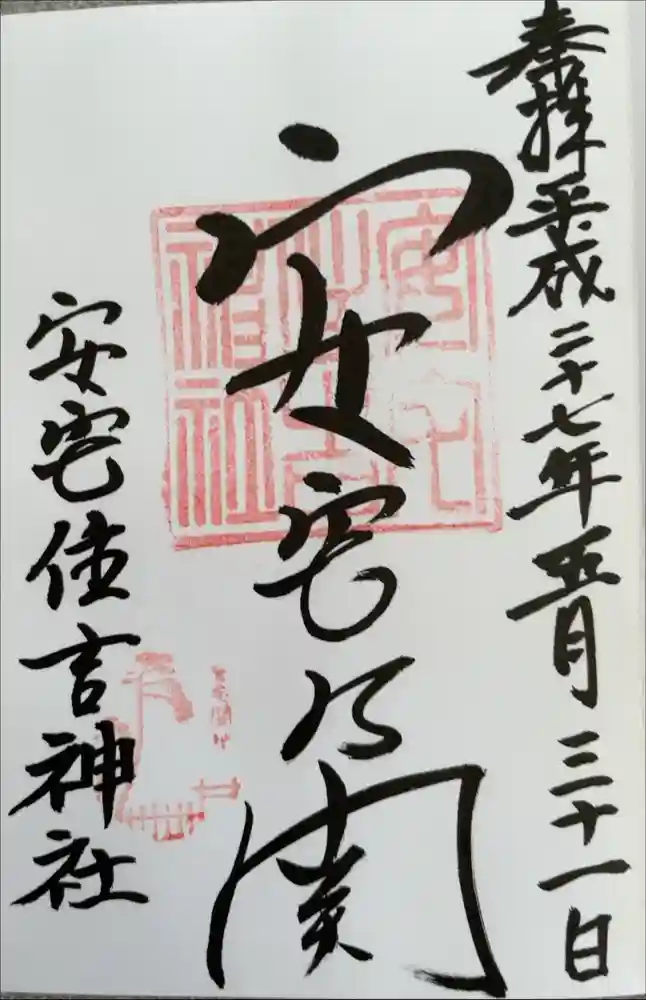 奉拝 平成二十七年五月三十一日
安宅乃関
安宅住吉神社
安宅住吉神社